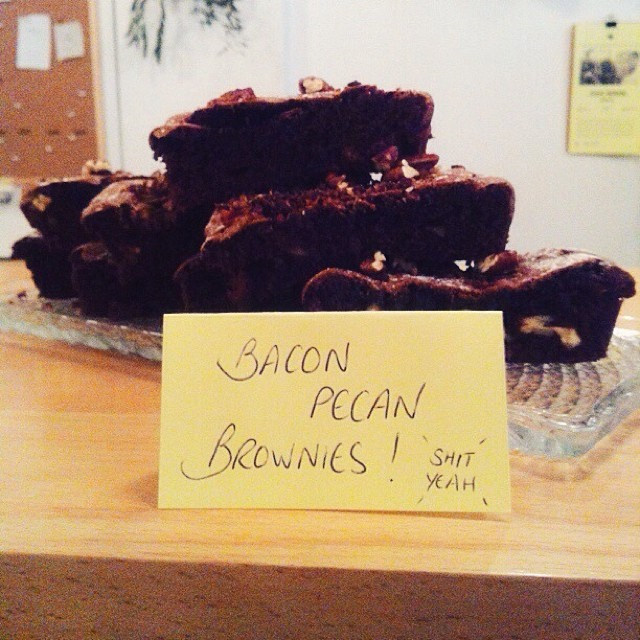 BACON
PECAN
BROWNIES!
SHIT
YEAH